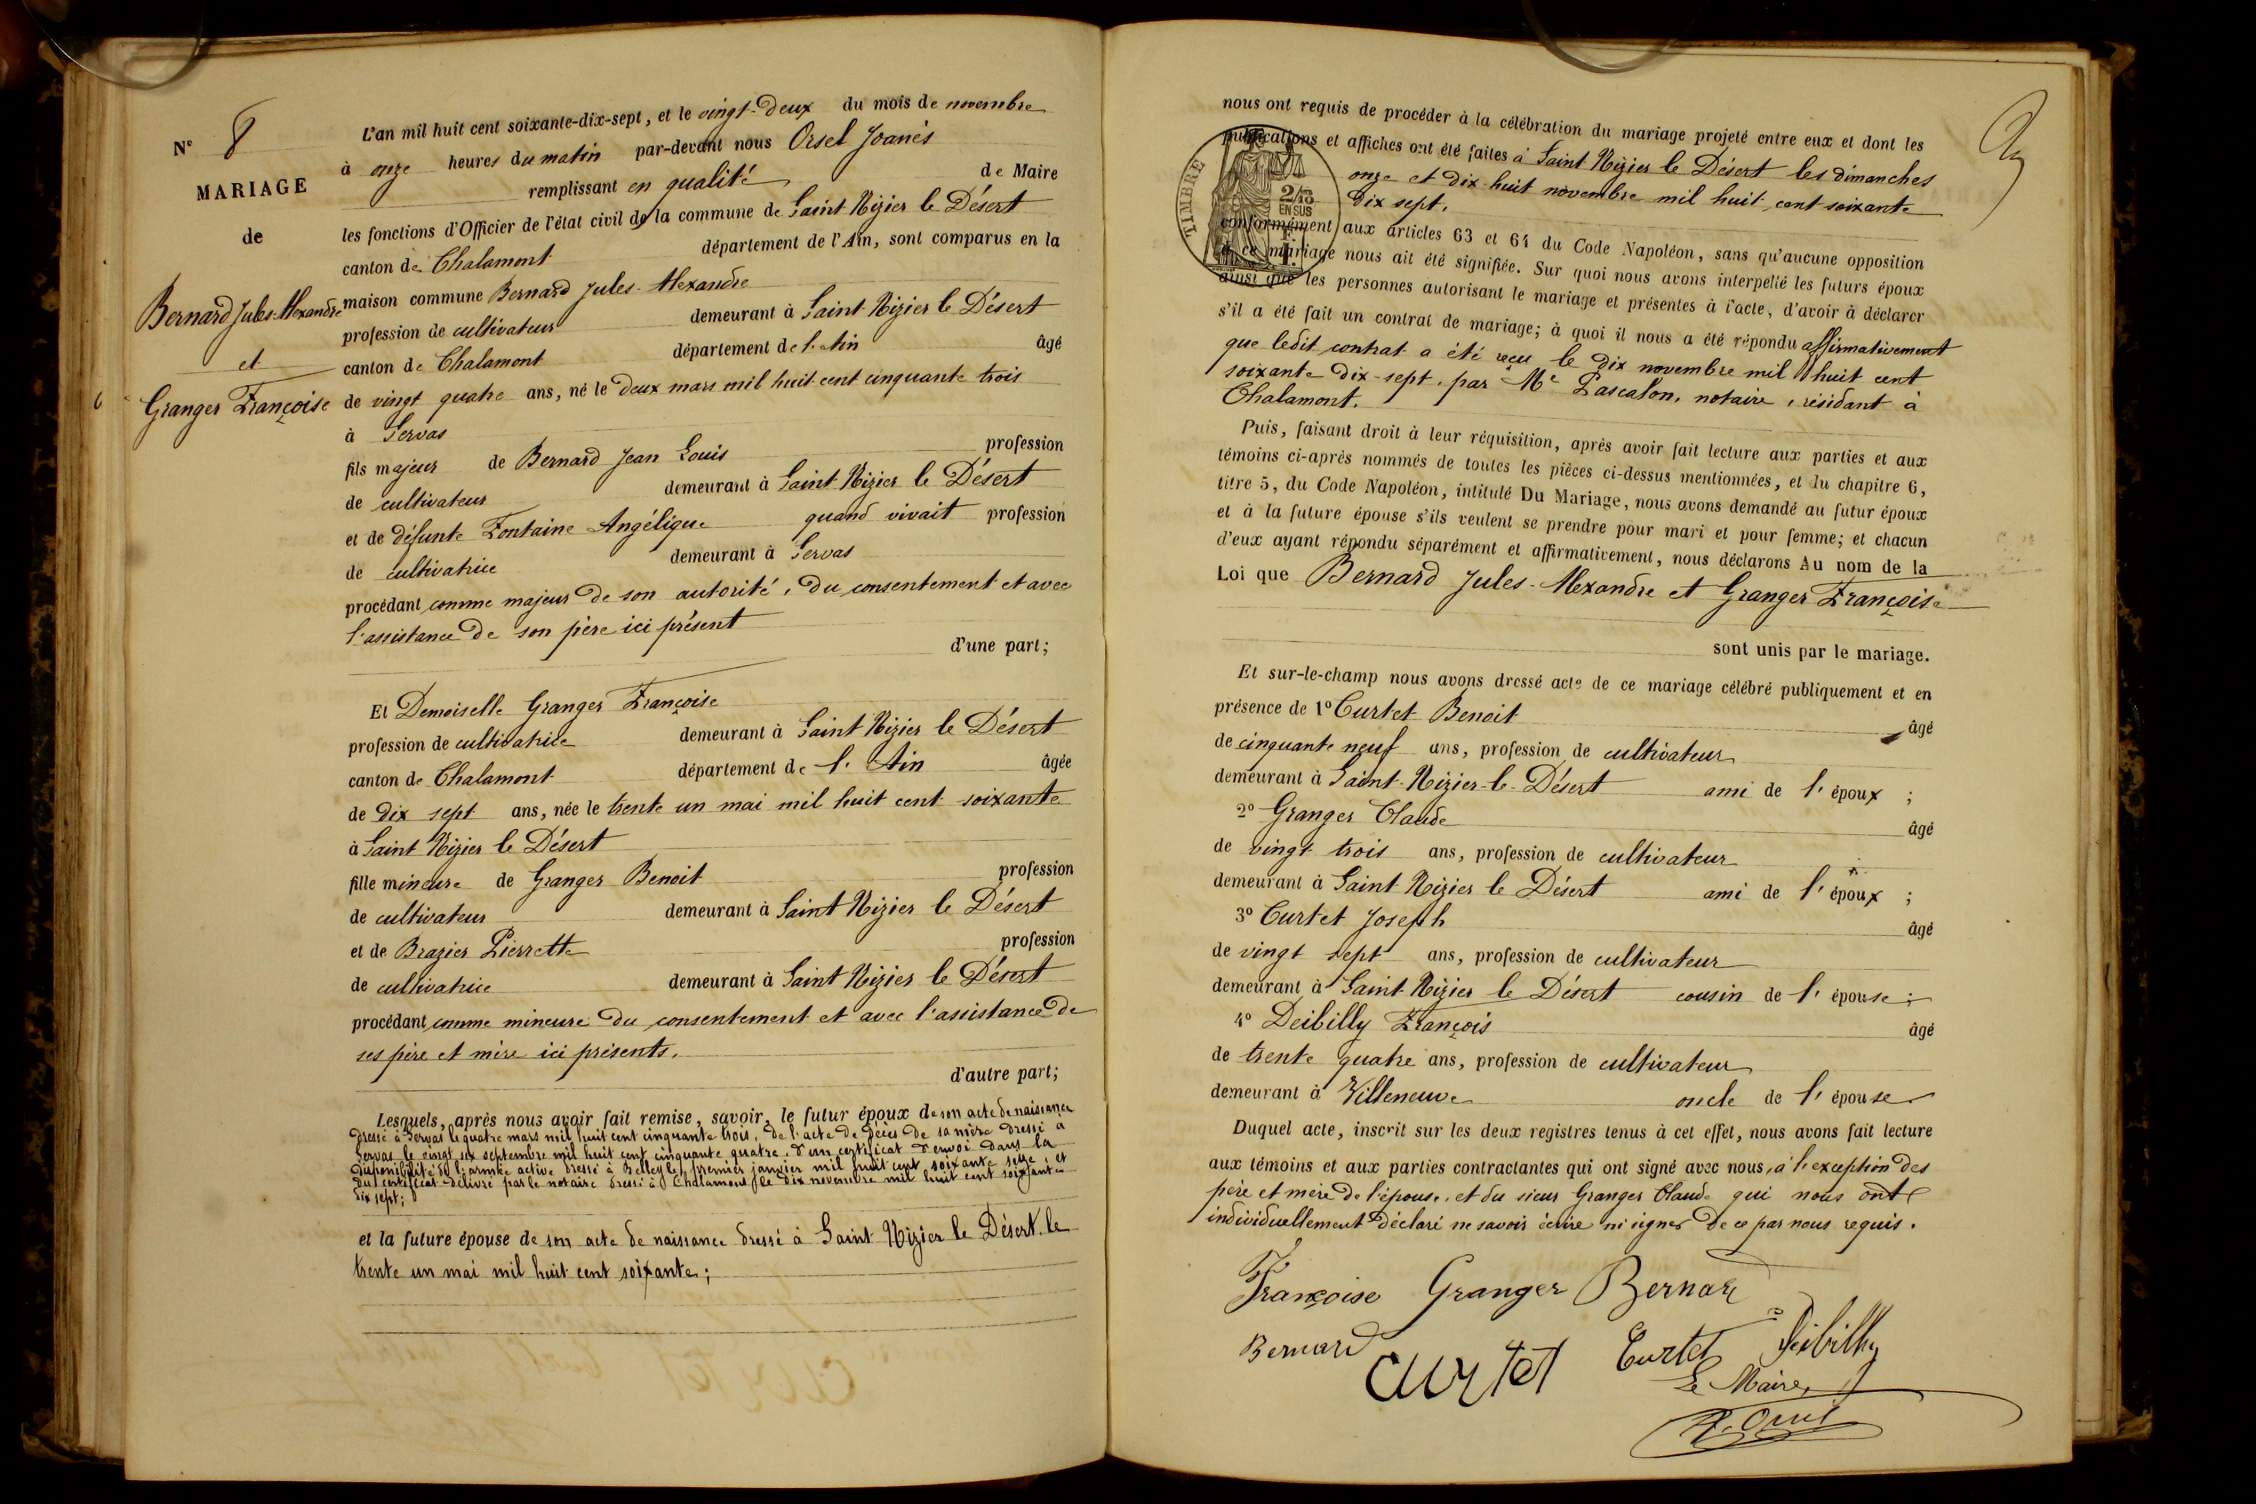 N° 8
MARIAGE
de
Bernard Jules-Alexandre
et
Granger Françoise
L'an mil huit cent soixante-dix-sept, et le vingt-deux du mois de novembre
à onze heures du matin par-devant nous Orsel Joanès
remplissant en qualité de Maire
les fonctions d'Officier de l'état civil de la commune de Saint Nizier le Désert
canton de Chalamont département de l'Ain, sont comparus en la
maison commune Bernard Jules-Alexandre
profession de cultivateur demeurant à Saint-Nizier le Désert
canton de Chalamont département de l'Ain âgé
de vingt quatre ans, né le deux mars mil huit cent cinquante trois
à Servas
fils majeur de Bernard Jean Louis profession
de cultivateur demeurant à Saint Nizier le Désert
et de défunte Fontaine Angélique quand vivait profession
de cultivatrice demeurant à Servas
procédant comme majeur de son autorité, du consentement et avec
l'assistance de son père ici présent
d'une part;
Et Demoiselle Granger Françoise
profession de cultivatrice demeurant à Saint Nizier le Désert
canton de Chalamont département de l'Ain âgée
de dix sept ans, née le trente un mai mil huit cent soixante
à Saint Nizier le Désert
fille mineure de Granger Benoit profession
de cultivateur demeurant à Saint Nizier le Désert
et de Brazier Pierrette profession
de cultivatrice demeurant à Saint Nizier le Désert
procédant comme mineure du consentement et avec l'assistance de
ses père et mère ici présents.
d'autre part;
Lesquels, après nous avoir fait remise, savoir, le futur époux de son acte de naissance
dressé à Servas le quatre mars mil huit cent cinquante trois, de l'acte de décès de sa mère dressé à
Servas le vingt six septembre mil huit cent cinquante quatre, d'un certificat d'envoi dans la
disponibilité de l'armée active dressé à Belley le premier janvier mil huit cent soixante seize et
du certificat délivré par le notaire dressé à Chalamont le dix novembre mil huit cent soixante
dix sept;
et la future épouse de son acte de naissance dressé à Saint Nizier le Désert le
trente un mai mil huit cent soixante;
nous ont requis de procéder à la célébration du mariage projeté entre eux et dont les
publications et affiches ont été faites à Saint Nizier le Désert les dimanches
onze et dix-huit novembre mil huit cent soixante
dix sept.
TIMBRE
2/10
EN SUS
conformément aux articles 63 et 64 du Code Napoléon, sans qu'aucune opposition
à ce mariage nous ait été signifiée. Sur quoi nous avons interpellé les futurs époux
ainsi que les personnes autorisant le mariage et présentes à l'acte, d'avoir à déclarer
s'il a été fait un contrat de mariage; à quoi il nous a été répondu affirmativement
que ledit contrat a été reçu le dix novembre mil huit cent
soixante dix-sept, par Me Pascalon, notaire, résidant à
Chalamont.
Puis, faisant droit à leur réquisition, après avoir fait lecture aux parties et aux
témoins ci-après nommés de toutes les pièces ci-dessus mentionnées, et du chapitre 6,
titre 5, du Code Napoléon, intitulé Du Mariage, nous avons demandé au futur époux
et à la future épouse s'ils veulent se prendre pour mari et pour femme; et chacun
d'eux ayant répondu séparément et affirmativement, nous déclarons Au nom de la
Loi que Bernard Jules-Alexandre et Granger Françoise
sont unis par le mariage.
Et sur-le-champ nous avons dressé acte de ce mariage célébré publiquement et en
présence de 1° Curtet Benoit âgé
de cinquante neuf ans, profession de cultivateur
demeurant à Saint-Nizier-le-Désert ami de l'époux ;
2° Granger Claude âgé
de vingt trois ans, profession de cultivateur
demeurant à Saint Nizier le Désert ami de l'époux ;
3° Curtet Joseph âgé
de vingt sept ans, profession de cultivateur
demeurant à Saint-Nizier le Désert cousin de l'épouse ;
4° Deibilly François âgé
de trente quatre ans, profession de cultivateur
demeurant à Villeneuve oncle de l'épouse
Duquel acte, inscrit sur les deux registres tenus à cet effet, nous avons fait lecture
aux témoins et aux parties contractantes qui ont signé avec nous, à l'exception des
père et mère de l'épouse, et du sieur Granger Claude qui nous ont
individuellement déclaré ne savoir écrire ni signer de ce par nous requis.
Françoise Granger Bernard
Bernard curtet Curtet Deibilly
Le Maire,